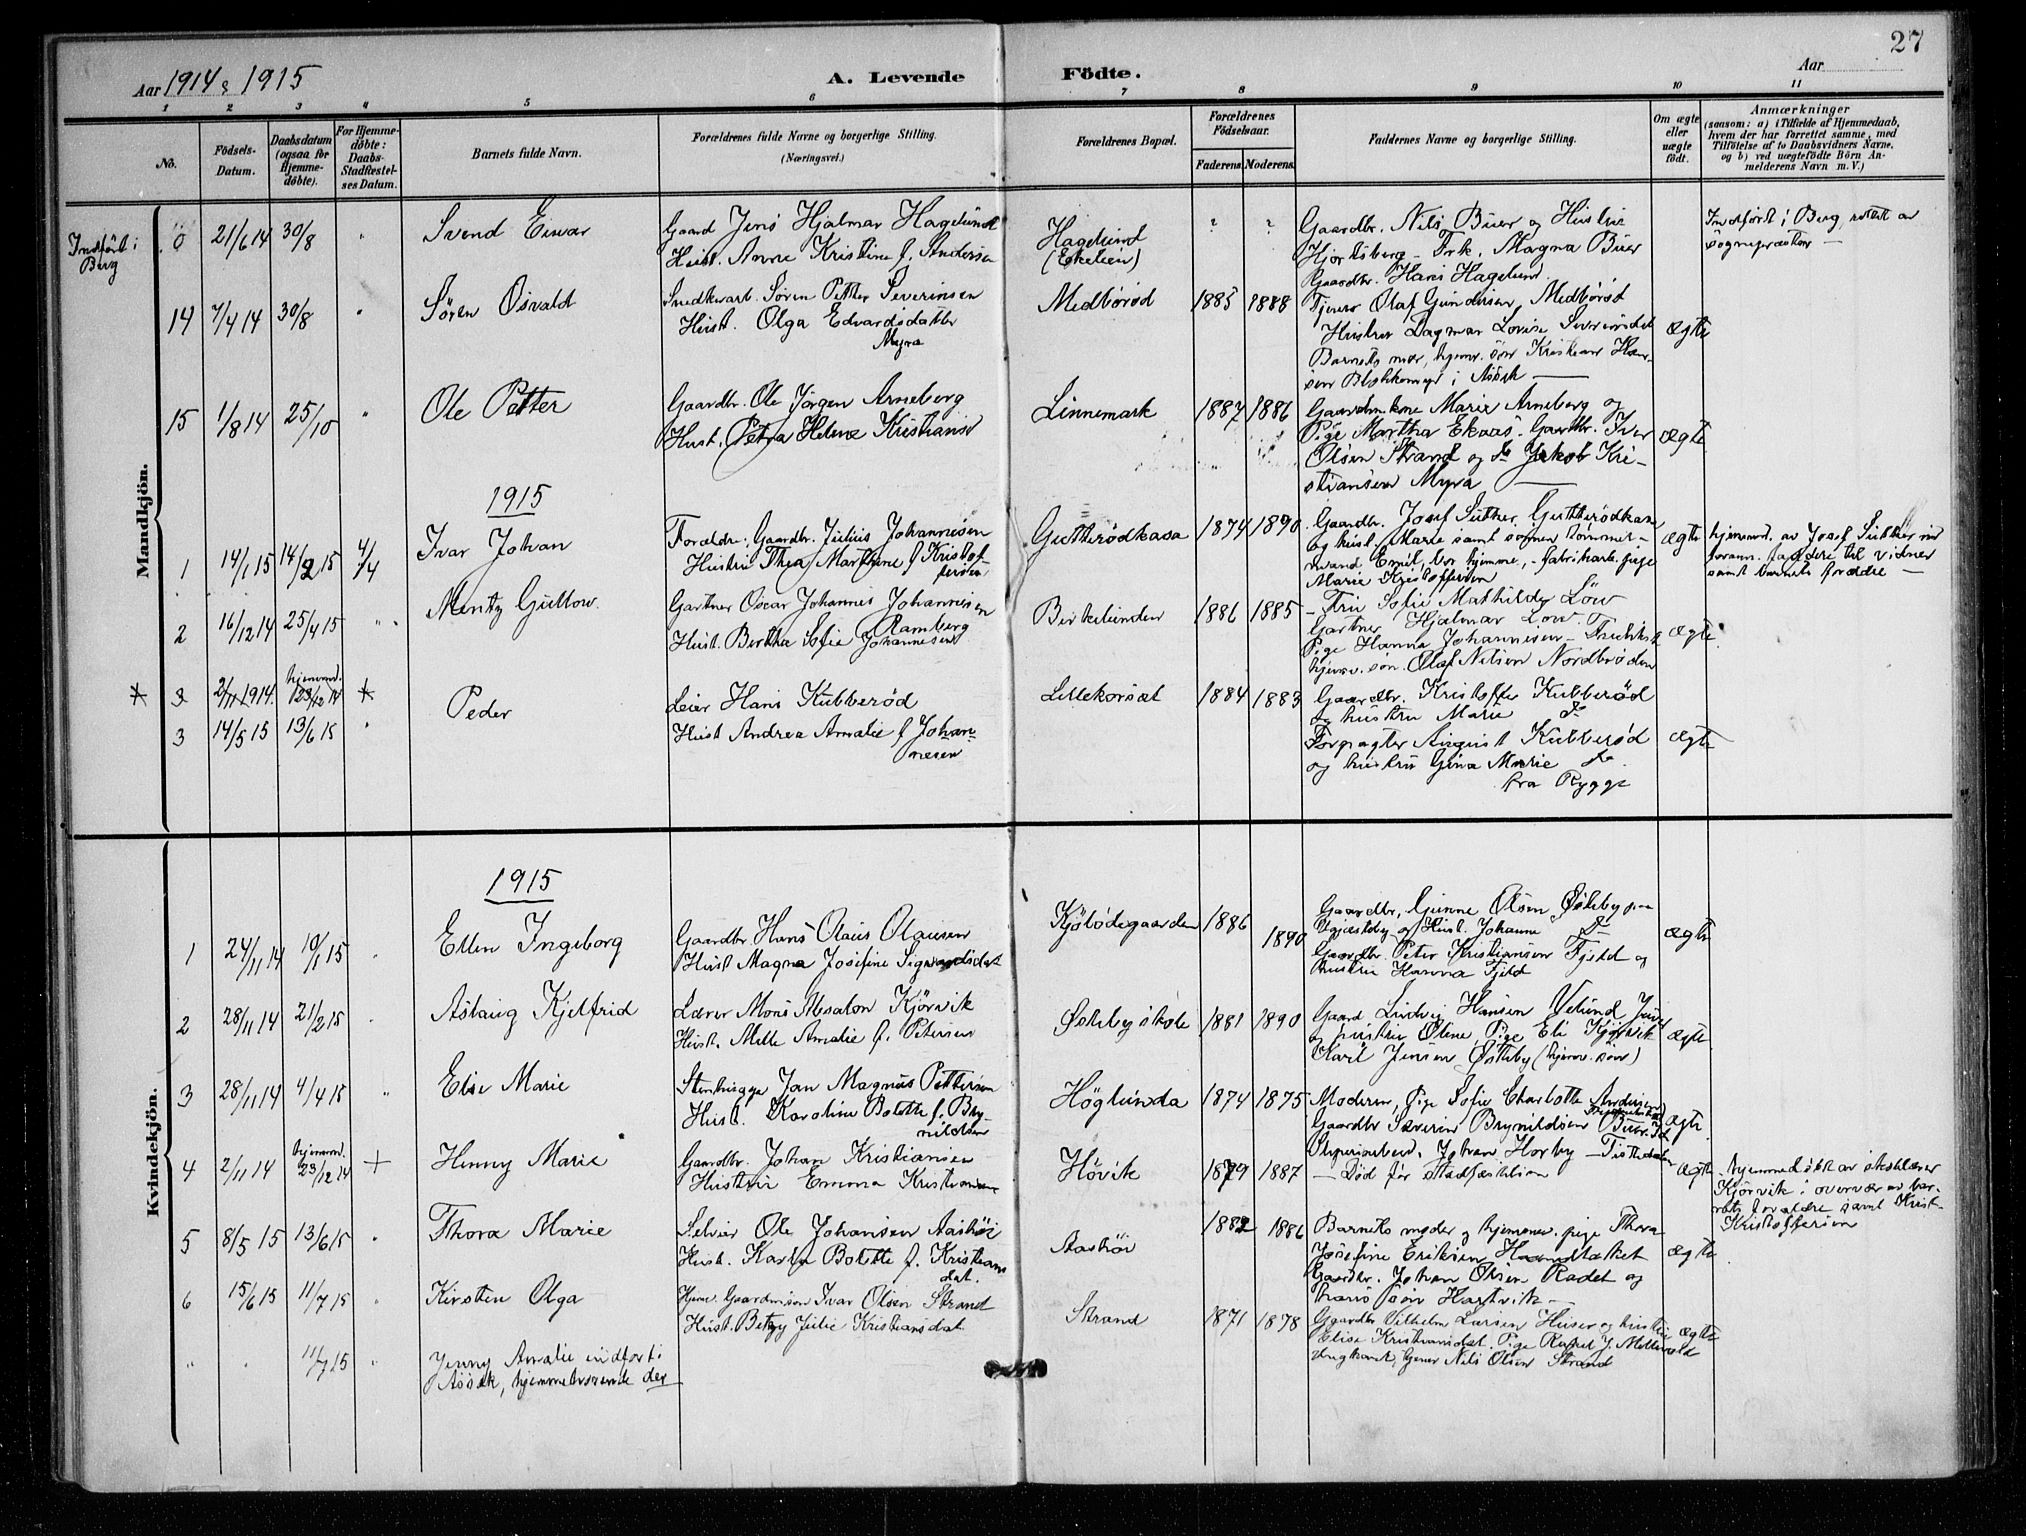 27
Aar 1914 & 1915
A. Levende
Födte.
Aar
1 2 3 4 5 6 7 8 9 10 11
No.
Födsels-Datum.
Daabsdatum (ogsaa for Hjemme-döbte).
For Hjemme-döbte: Daabs-Stadfæstel-ses Datum.
Barnets fulde Navn.
Forældrenes fulde Navne og borgerlige Stilling.
(Næringsvei.)
Forældrenes Bopæl.
Forældrenes Födselsaar.
Faderens. Moderens.
Faddernes Navne og borgerlige Stilling.
Om ægte eller uægte födt.
Anmærkninger
(saasom: a) i Tilfælde af Hjemmedaab, hvem der har forrettet samme, med Tilföielse af to Daabsvidners Navne, og b) ved uægtefödte Börn An-melderens Navn m. V.)
Mandkjön.
Indført i Berg
0 21/6 14 30/8 " Svend Eivar
Gaard Jens Hjalmar Hagelund
Hust. Anne Kristine f. Andersen
Hagelund (Ekelien)
? ?
Gaardbr. Nils Buer og Hustru
Hjortsberg - Frk. Magna Buer
Gaardbr. Hans Hagelund
Indført i Berg, rettet av sogneprasten —
14 7/4 14 30/8 " Søren Osvald
Snedkerarb. Søren Petter Severinsen
Hust. Olga Edvardsdatter
Myra
Medbørød 1885 1888
Tjener Olaf Gundersen, Medbørød
Hustru Dagmar Lovise Severinsdat
Barnets mor, hjemv. søn Kristian Han-
sen Blekkemyr i Asak —
ægte
15 1/8 14 25/10 " Ole Petter
Gaardbr. Ole Jørgen Arneberg
Hust. Petra Helene Kristians
Linnemark 1887 1886
Gaardmkone Marie Arneberg og
Pige Martha Ekaas. Gaardbr. Iver
Olsen Strand og do Jakob Kri-
stiansen Myra —
ægte
1915
1 14/1 15 14/2 15 4/4 Ivar Johan
Forældre: Gaardbr. Julius Johannesen
Hustru Thea Marthine f. Kristof-
fersen
Gutterødkasa 1874 1890
Gaardbr. Josef Sutter, Gutterødkasa
og hust. Marie samt sønnen tømmer-
mand Emil, bor hjemme, - fabrikarb. pige
Marie Kristoffersen
ægte
hjemmd. av Josef Sutter med
forann. faddere til vidner
samt barnets forældre —
2 16/12 14 25/4 15 " Mentz Gustow
Gartner Oscar Johannes Johannesen
Ramberg
Hust. Bertha Sofie Johannesen
Birkelunden 1886 1885
— Fru Sofie Mathilde Löw
Gartner Hjalmar Löw.
Pige Hanna Johannesen — Fredrikst
hjemv. søn. Olaf Nilsen Nordbrøden
ægte
* 3 2/11 1914 hjemmd. 23/12 14 *
3 14/5 15 13/6 15 " Peder
Leier Hans Kubberød
Hust Andrea Amalie f. Johan-
nesen
Lillekorsæt 1884 1883
Gaardbr. Kristoffer Kubberød
og hustru Marie do
Forpagter August Kubberød
og hustru Gina Marie do
fra Rygge
ægte
Kvindekjön.
1915
1 24/11 14 10/1 15 " Ellen Ingeborg
Gaardbr Hans Olaus Olausen
Hust Magna Josefine Sigvardsdat
Kjøbødegaarden 1886 1890
Gaardbr. Gunne Olsen Østeby
og Hust. Johanne do
Gaardbr. Peter Kristiansen Fjeld og
hustru Hanna Fjeld
ægte
2 28/11 14 21/2 15 " Aslaug Kjelfrid
Lærer Mons Absalon Kjørvik
Hust. Mille Amalie f. Petersen
Østeby skole 1881 1890
Gaard Ludvig Hansen
og hustru Oline, Pige Eli Kjørvik
Karl Jensen Østeby (hjemv. søn)
ægte
3 28/11 14 4/4 15 " Else Marie
Stenhugge Jan Magnus Pettersen
Hust. Karoline Bolette f. Bry-
nildsen
Höglunda 1874 1875
Moderen, Pige Sofie Charlotte Andersen
Gaardbr Severin Brynildsen Buer. Id
Sliperiarbeid. Johan Horby — Tistedalen
ægte
4 2/11 14 hjemmd. 23/12 14 + Hinny Marie
Gaardbr. Johan Kristiansen
Hustru Emma Kristiansen
Høvik 1879 1887
— Død før stadfæstelsen
ægte
hjemmedøbt av skolelærer
Kjørvik i overvær av bar-
nets forældre samt Krist-
Kristoffersen
5 8/5 15 13/6 15 " Thora Marie
Selvei Ole Johansen Aashøi
Hust. Karen Bolette f. Kristians
dat.
Aashöi 1882 1886
Barnets moder og hjemmev. pige Thora
Josefine Eriksen Haandtaket
Gaardbr. Johan Olsen Rødet og
hans søn Hartvik —
ægte
6 15/6 15 11/7 15 " Kirsten Olga
Hjem. Gaardmsøn Ivar Olsen Strand
Hust. Betzy Julie Kristiansdat
Strand 1871 1878
Gaardbr Vilhelm Larsen Huser og hustru
Elise Kristiansdat. Pige Ragna J.
ungkarl, tjener Nils Olsen Strand
ægte
" " 11/7 15 " Jenny Amalie indført i
Asak, hjemmehørende der